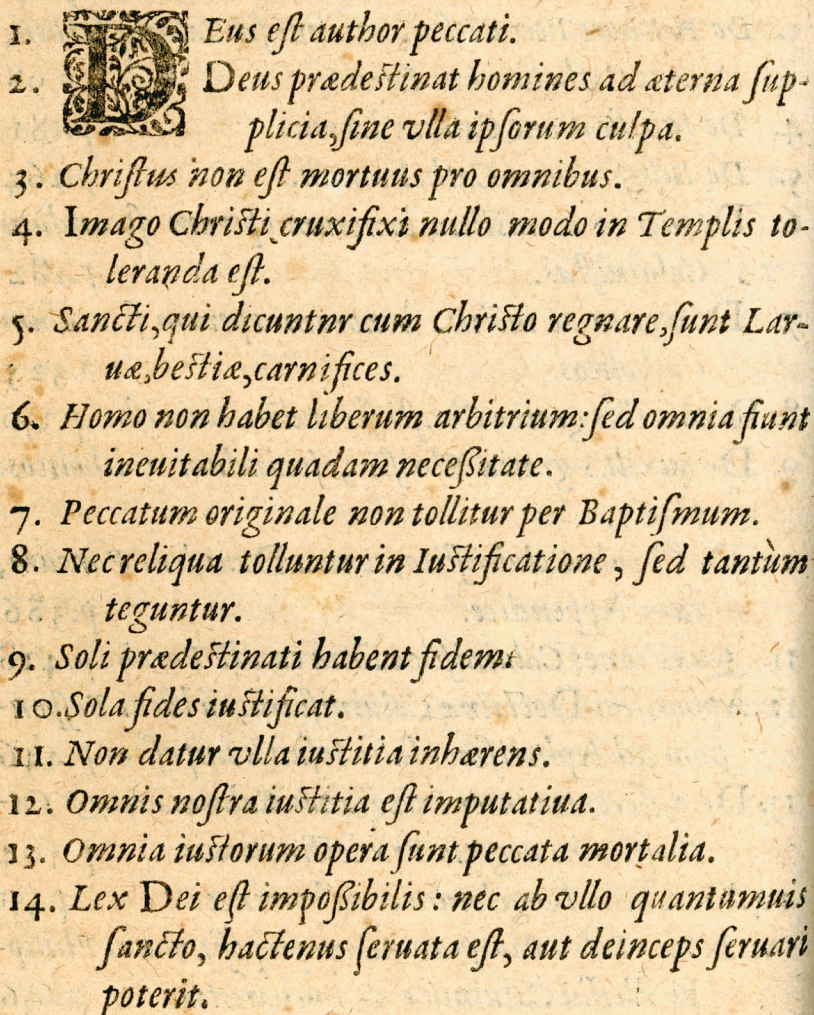 1. DEus eſt author peccati.
2. Deus prædeſtinat homines ad æterna ſup-
plicia, ſine vlla ipſorum culpa.
3. Chriſtus non eſt mortuus pro omnibus.
4. Imago Chriſti cruxifixi nullo modo in Templis to-
leranda eſt.
5. Sancti, qui dicuntnr cum Chriſto regnare, ſunt Lar-
uæ, beſtiæ, carnifices.
6. Homo non habet liberum arbitrium: ſed omnia fiunt
ineuitabili quadam neceßitate.
7. Peccatum originale non tollitur per Baptiſmum.
8. Nec reliqua tolluntur in Iuſtificatione, ſed tantùm
teguntur.
9. Soli prædeſtinati habent fidem:
10. Sola fides iuſtificat.
11. Non datur vlla iuſtitia inhærens.
12. Omnis noſtra iuſtitia eſt imputatiua.
13. Omnia iuſtorum opera ſunt peccata mortalia.
14. Lex Dei eſt impoßibilis: nec ab vllo quantumuis
ſancto, hactenus ſeruata eſt, aut deinceps ſeruari
poterit.